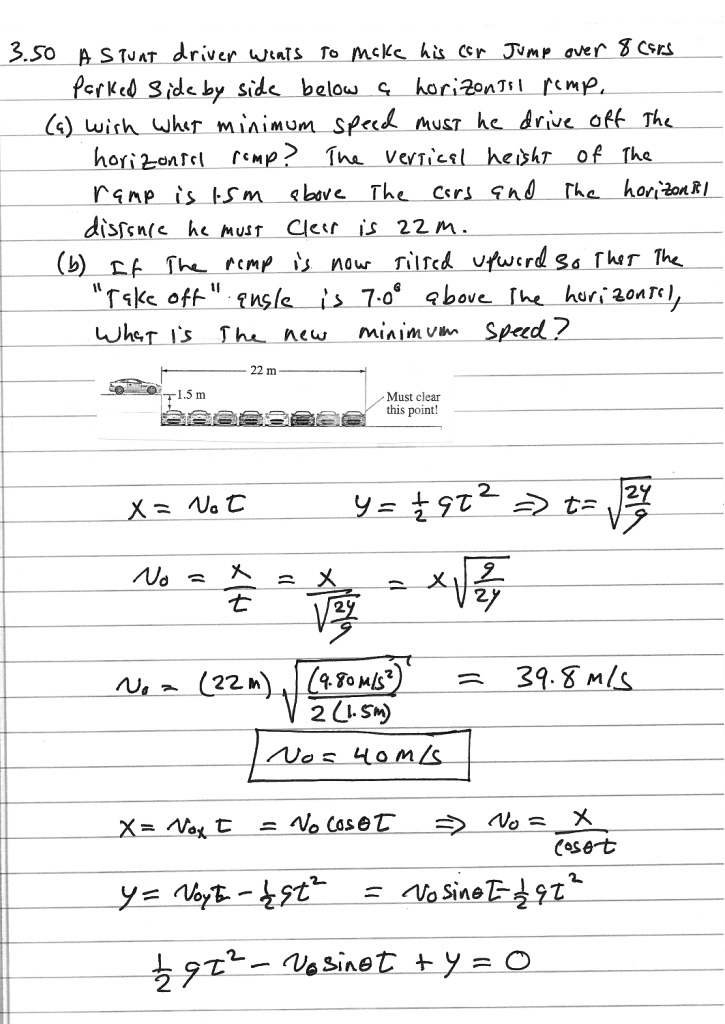 3.50 A STUNT driver wants to make his car Jump over 8 cars
Parked side by side below a horizontal ramp.
(a) With what minimum speed must he drive off the
horizontal ramp? The vertical height of the
ramp is 1.5m above the cars and the horizontal
distance he must clear is 22m.
(b) If the ramp is now tilted upward so that the
"Take off" angle is 7.0° above the horizontal,
What is the new minimum speed?
22 m
1.5 m
Must clear
this point!
x = v₀t y = ½gt² ⇒ t = √(2y/g)
v₀ = x/t = x/√(2y/g) = x√(g/2y)
v₀ = (22m) √((9.80 m/s²)/2(1.5m)) = 39.8 m/s
v₀ = 40 m/s
x = v₀ₓt = v₀cosθt ⇒ v₀ = x/cosθt
y = v₀yt - ½gt² = v₀sinθt - ½gt²
½gt² - v₀sinθt + y = 0